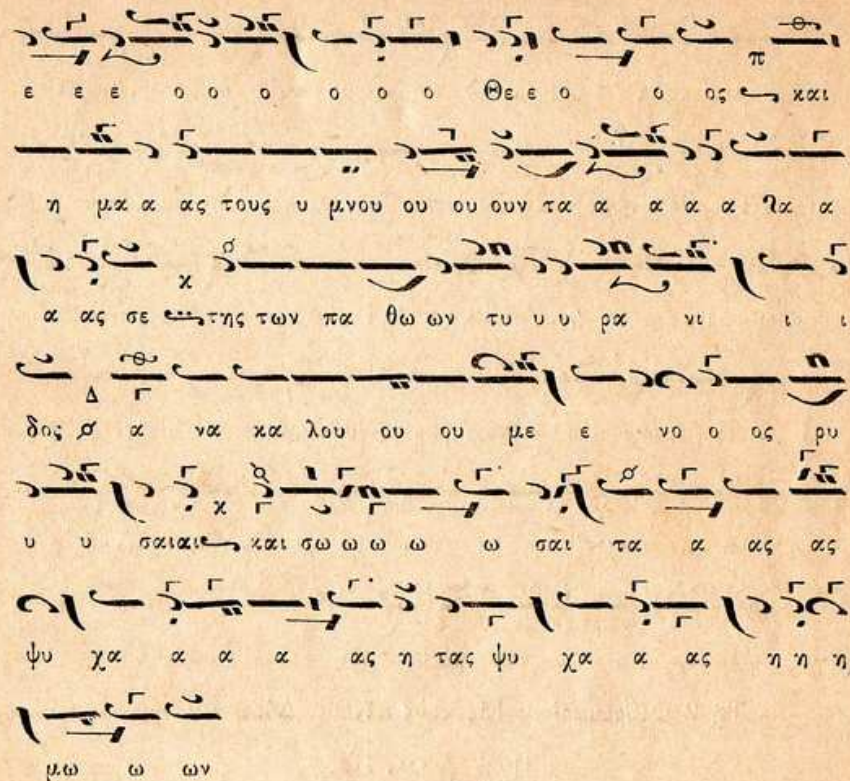 ε ε ε ο ο ο ο ο ο Θε ε ο ο ος π και
η μα α ας τους υ μνου ου ου ουν τα α α α α λα α
α ας σε κ της των πα θω ων τυ υ υ ρα νι ι ι
δος Δ α να κα λου ου ου με ε νο ο ος ρυ
υ υ σαιαι κ και σω ω ω ω ω σαι τα α ας ας
ψυ χα α α α ας η τας ψυ χα α ας η η η
μω ω ων